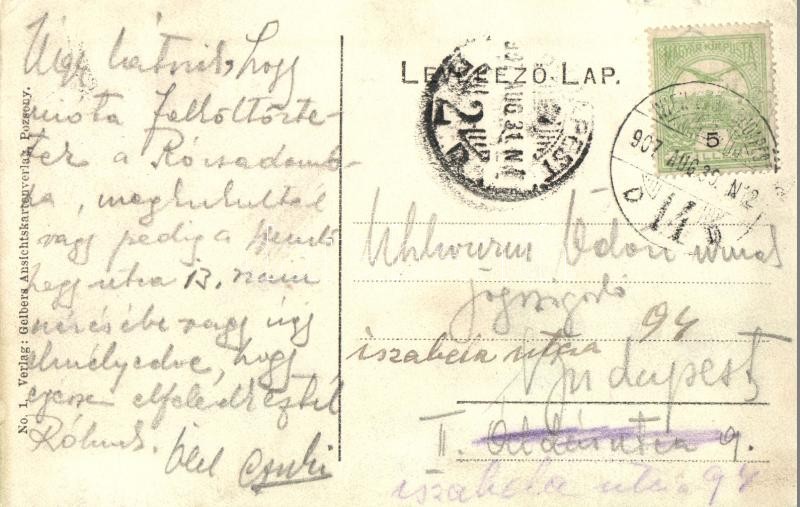 Úgy látszik, hogy
mióta felköltözte-
tek a Rózsadomb-
ra, meghűltél
vagy pedig a
hegy utca 13. szám
nézésébe vagy úgy
elmélyedve, hogy
egészen elfeledkeztél
Rólunk. Ölel
No. 1. Verlag: Gelbers Ansichtskartenverlag, Pozsony.
LEVELEZŐ-LAP.
MAGYAR KIR. POSTA
5
907 AUG 31 N
907 AUG 30 N 12
D
Ödön úrnak
joggyakorló
izabela utcza 94
Budapest
II. 9.
izabela utcza 94